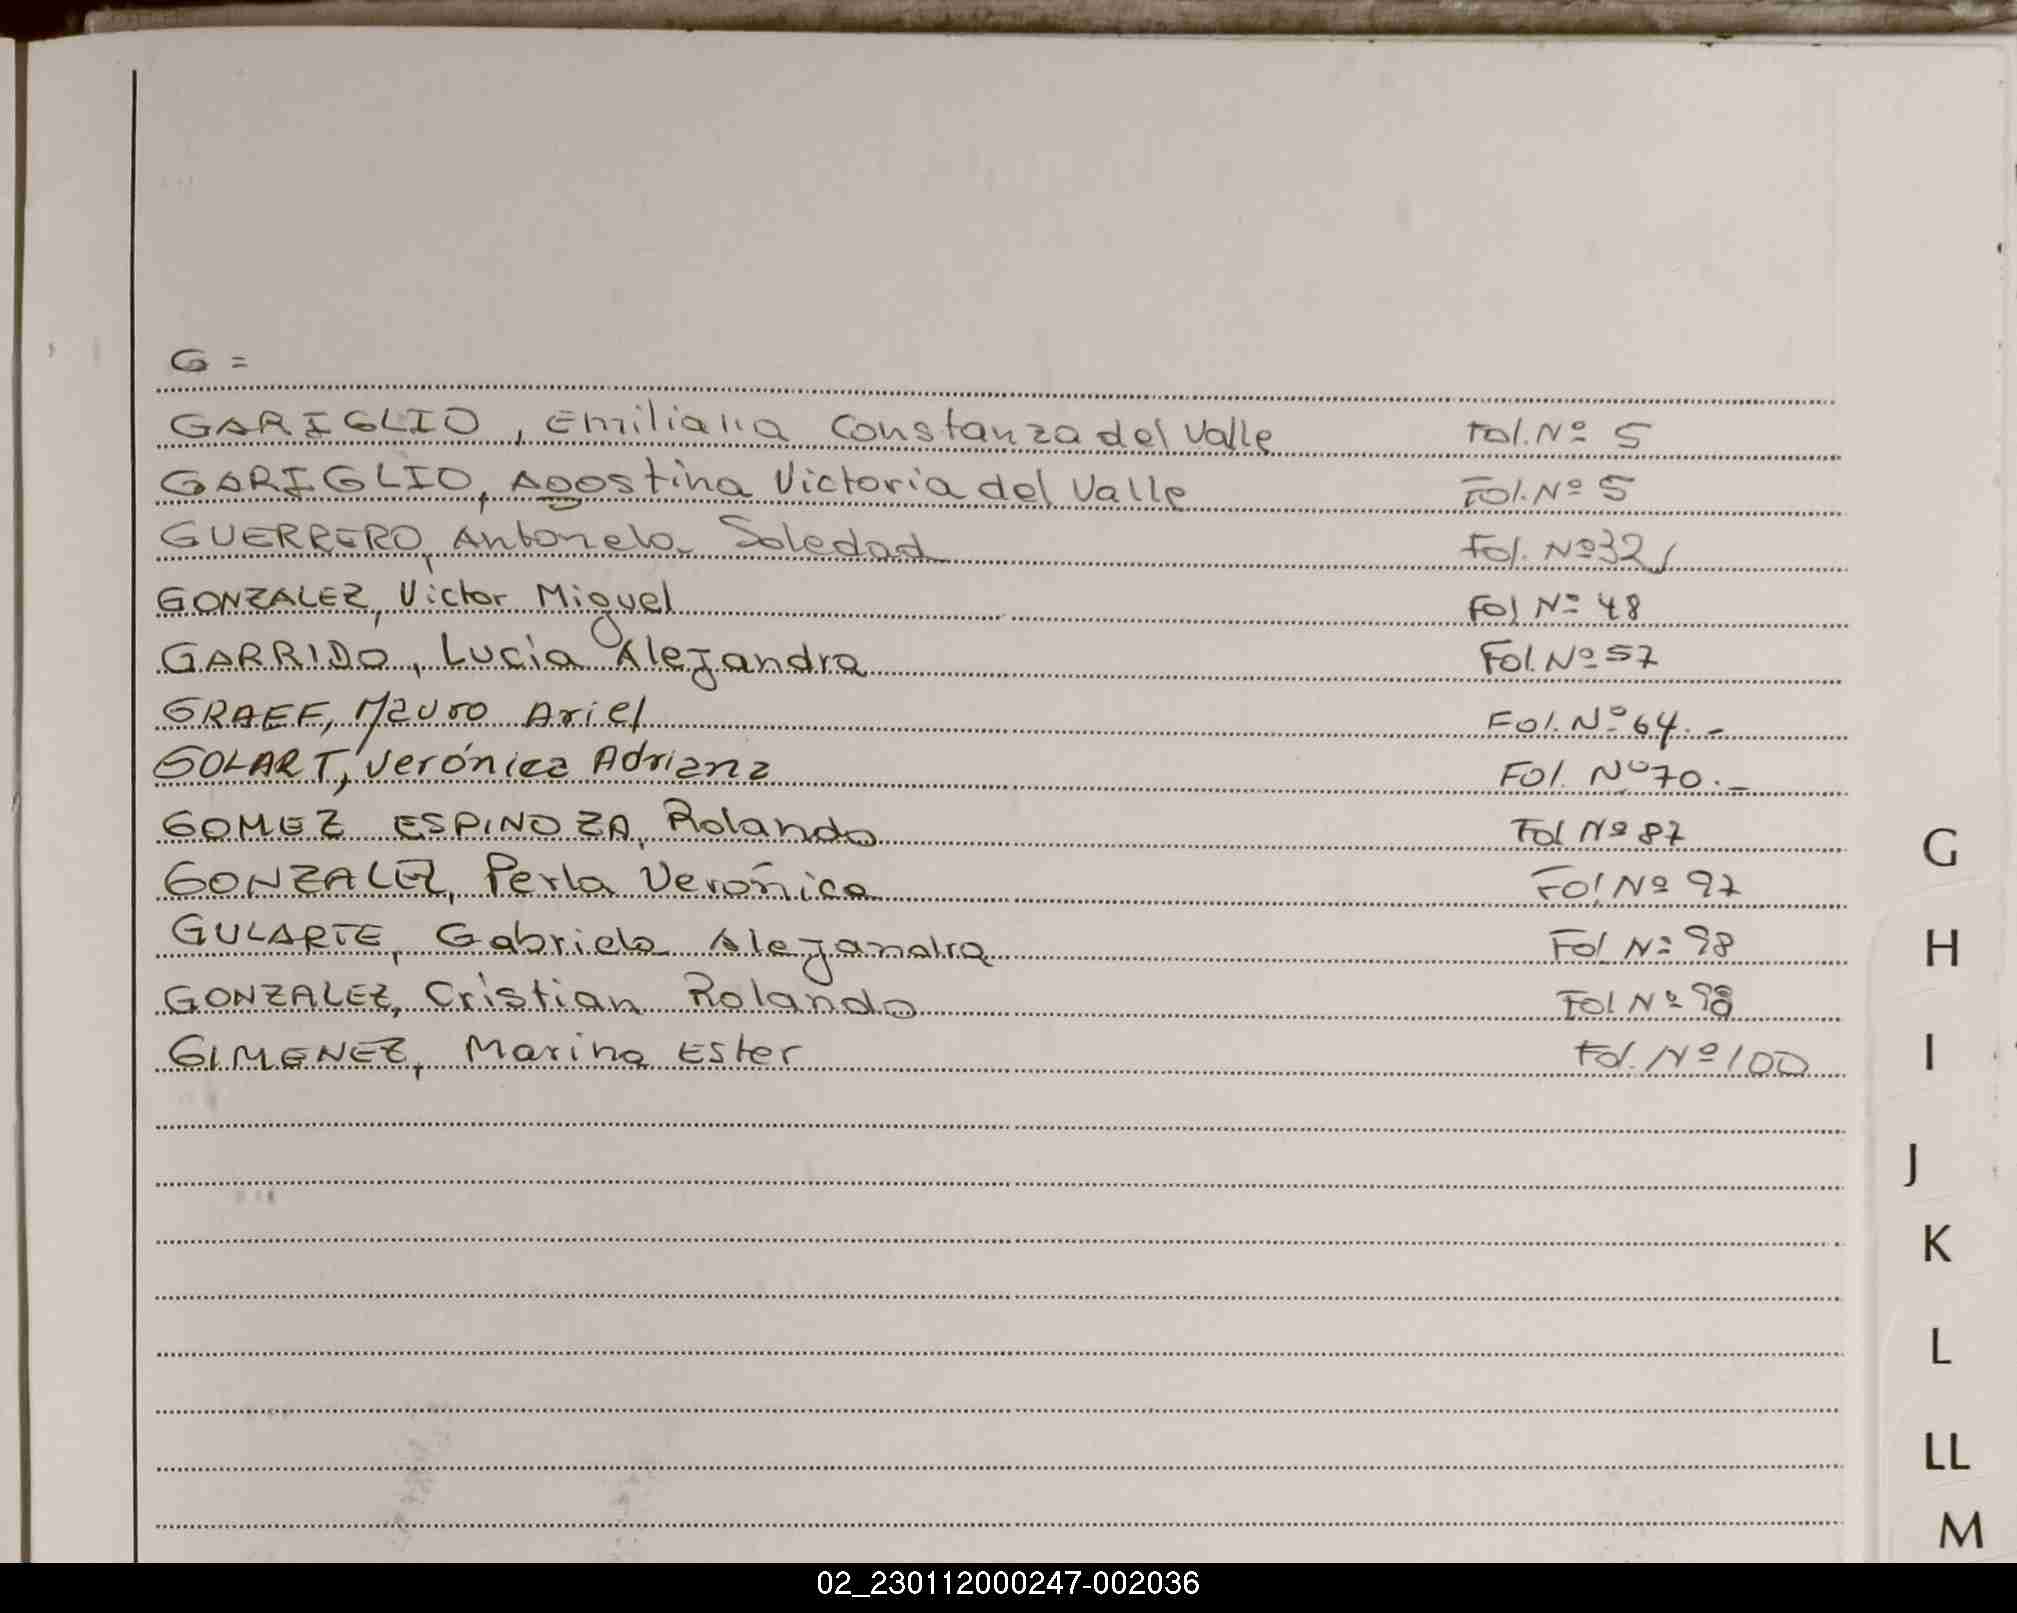 G =
GARIGLIO, Emiliana Constanza del Valle Fol. Nº 5
GARIGLIO, Agostina Victoria del Valle Fol. Nº 5
GUERRERO, Antonela Soledad Fol. Nº 32
GONZALEZ, Victor Miguel Fol Nº 48
GARRIDO, Lucia Alejandra Fol. Nº 57
GRAEF, Mauro Ariel Fol. Nº 64.-
GOLART, Verónica Adriana Fol. Nº 70.-
GOMEZ ESPINOZA, Rolando Fol Nº 87
GONZALEZ, Perla Verónica Fol Nº 97
GULARTE, Gabriela Alejandra Fol Nº 98
GONZALEZ, Cristian Rolando Fol Nº 98
GIMENEZ, Marina Ester Fol. Nº 100
G
H
I
J
K
L
LL
M
02_230112000247-002036